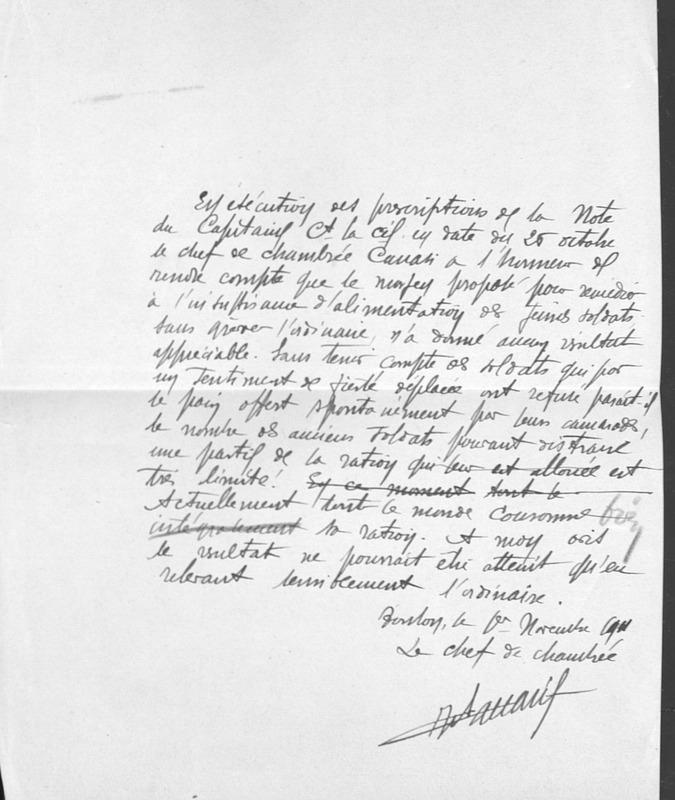 En exécution des prescriptions de la Note
du Capitaine Ct la Cie en date du 25 octobre
le chef de chambrée Canavi a l'honneur de
rendre compte que le moyen proposé pour remédier
à l'insuffisance d'alimentation des jeunes soldats
sans grever l'ordinaire, n'a donné aucun résultat
appréciable. Sans tenir compte des soldats qui par
un sentiment de fierté déplacée ont refusé paraît-il
le pain offert spontanément par leurs camarades,
le nombre des anciens soldats pouvant distraire
une partie de la ration qui leur est allouée est
très limité. En ce moment tout le
Actuellement tout le monde consomme bien
intégralement sa ration. A mon avis
le résultat ne pourrait être atteint qu'en
relevant sensiblement l'ordinaire.
le 1er Novembre 1911
Le chef de chambrée